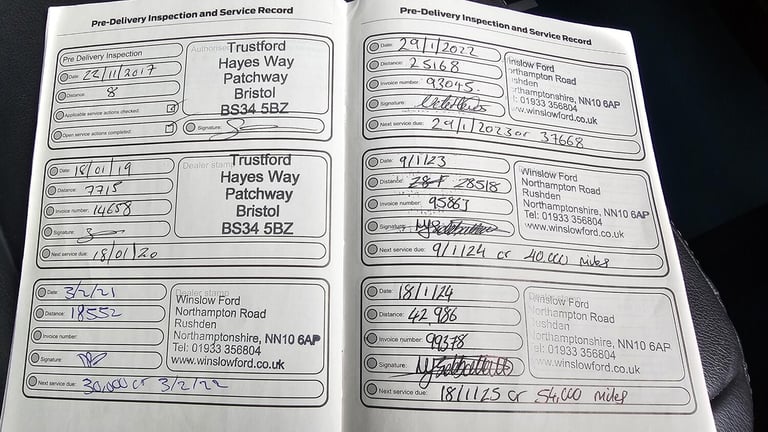 Pre-Delivery Inspection and Service Record
Pre Delivery Inspection
Date: 22/11/2017
Distance: 8
Applicable service actions checked.
Open service actions completed.
Authorised
Trustford
Hayes Way
Patchway
Bristol
BS34 5BZ
Signature:
Date: 18/01/19
Distance: 7715
Invoice number: 14658
Signature:
Next service due: 18/01/20
Dealer stamp
Trustford
Hayes Way
Patchway
Bristol
BS34 5BZ
Date: 3/2/21
Distance: 18552
Invoice number:
Signature:
Next service due: 30,000 or 3/2/22
Dealer stamp
Winslow Ford
Northampton Road
Rushden
Northamptonshire, NN10 6AP
Tel: 01933 356804
www.winslowford.co.uk
Pre-Delivery Inspection and Service Record
Date: 29/1/2022
Distance: 25168
Invoice number: 93045.
Signature:
Next service due: 29/1/2023 or 37668
Winslow Ford
Northampton Road
Rushden
Northamptonshire, NN10 6AP
Tel: 01933 356804
www.winslowford.co.uk
Date: 9/1/23
Distance: 28518
Invoice number: 95863
Signature:
Next service due: 9/1/24 or 40,000 miles
Winslow Ford
Northampton Road
Rushden
Northamptonshire, NN10 6AP
Tel: 01933 356804
www.winslowford.co.uk
Date: 18/1/24
Distance: 42,986
Invoice number: 99378
Signature:
Next service due: 18/1/25 or 54,000 miles
Dealer stamp
Winslow Ford
Northampton Road
Rushden
Northamptonshire, NN10 6AP
Tel: 01933 356804
www.winslowford.co.uk